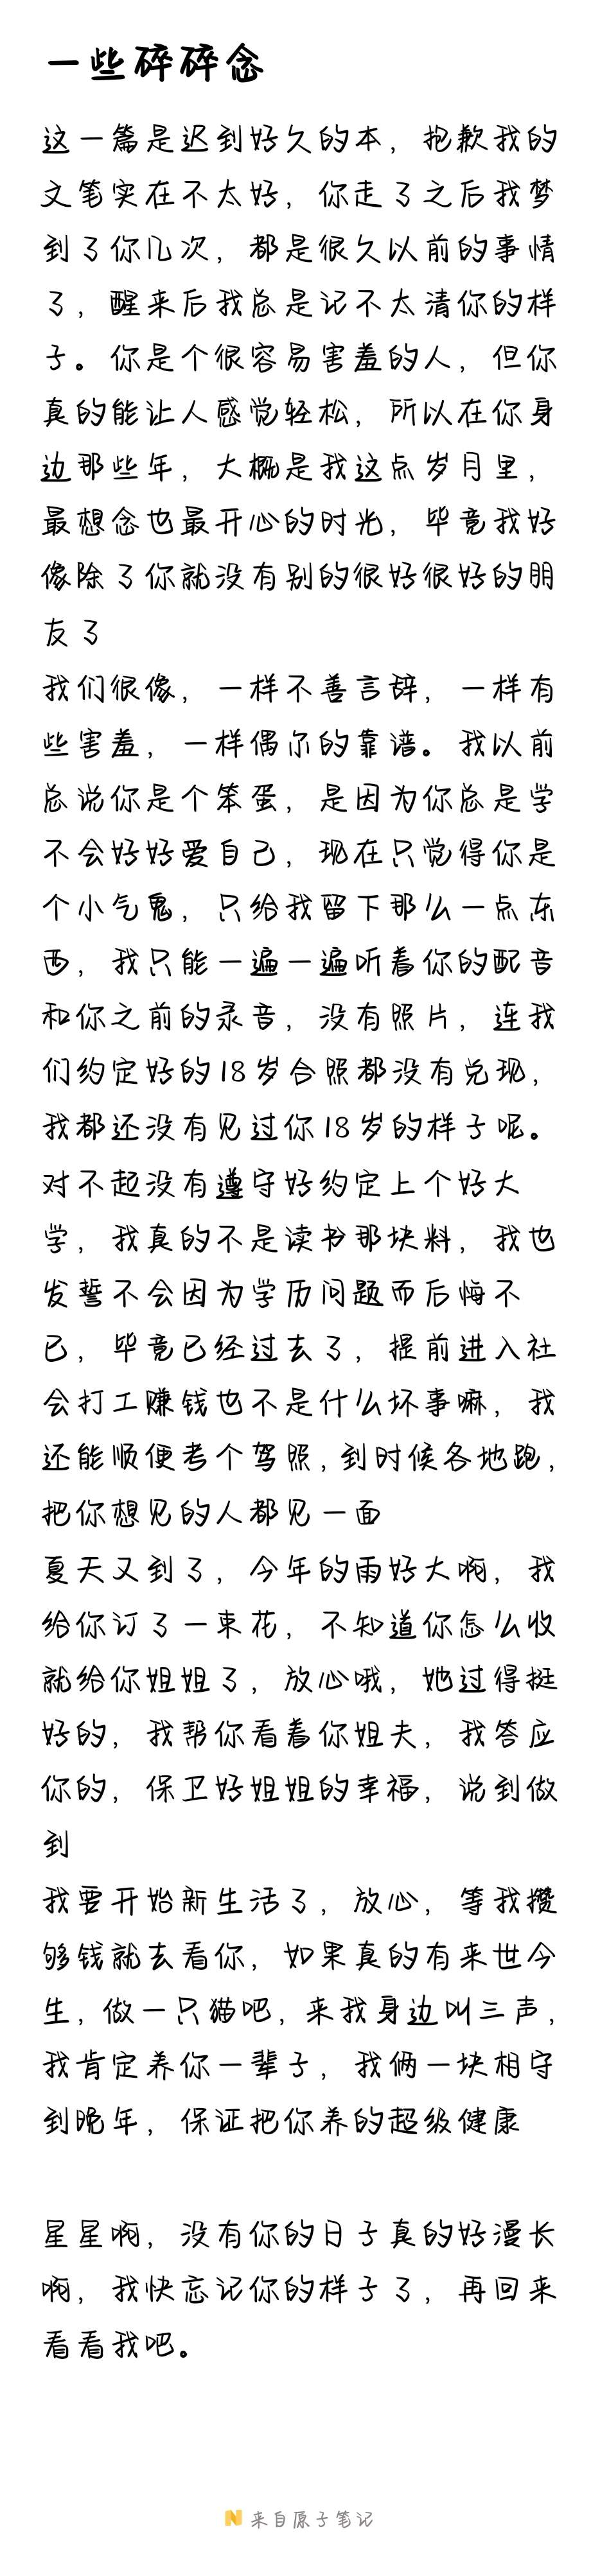 一些碎碎念
这一篇是迟到好久的本，抱歉我的
文笔实在不太好，你走了之后我梦
到了你几次，都是很久以前的事情
了，醒来后我总是记不太清你的样
子。你是个很容易害羞的人，但你
真的能让人感觉轻松，所以在你身
边那些年，大概是我这点岁月里，
最想念也最开心的时光，毕竟我好
像除了你就没有别的很好很好的朋
友了
我们很像，一样不善言辞，一样有
些害羞，一样偶尔的靠谱。我以前
总说你是个笨蛋，是因为你总是学
不会好好爱自己，现在只觉得你是
个小气鬼，只给我留下那么一点东
西，我只能一遍一遍听着你的配音
和你之前的录音，没有照片，连我
们约定好的18岁合照都没有兑现，
我都还没有见过你18岁的样子呢。
对不起没有遵守好约定上个好大
学，我真的不是读书那块料，我也
发誓不会因为学历问题而后悔不
已，毕竟已经过去了，提前进入社
会打工赚钱也不是什么坏事嘛，我
还能顺便考个驾照，到时候各地跑，
把你想见的人都见一面
夏天又到了，今年的雨好大啊，我
给你订了一束花，不知道你怎么收
就给你姐姐了，放心哦，她过得挺
好的，我帮你看着你姐夫，我答应
你的，保卫好姐姐的幸福，说到做
到
我要开始新生活了，放心，等我攒
够钱就去看你，如果真的有来世今
生，做一只猫吧，来我身边叫三声，
我肯定养你一辈子，我俩一块相守
到晚年，保证把你养的超级健康
星星啊，没有你的日子真的好漫长
啊，我快忘记你的样子了，再回来
看看我吧。
来自原子笔记